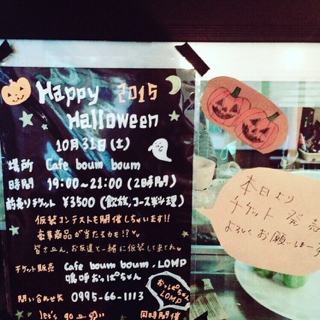 Happy 2015
Halloween
10月31日(土)
場所 Cafe boum boum
時間 19:00~21:00 (2時間)
前売りチケット ¥3500 (飲放、コース料理)
仮装コンテストも開催しちゃいます!!
豪華商品が当たるかも!?
皆さん、お友達と一緒に仮装して
チケット販売 Cafe boum boum、LOMP
おっぱちゃん
問い合わせ 0995-66-1113
Let's go
同時開催
おっぱちゃん
LOMP
本日より
チケット 発売
よろしくお願いしま